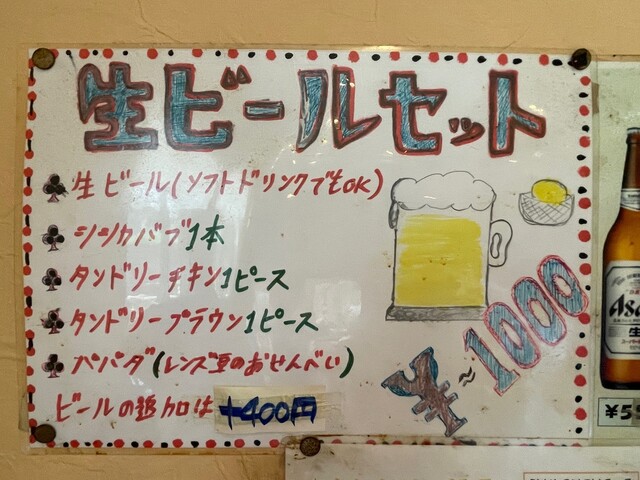 生ビールセット
♣生ビール(ソフトドリンクでもOK)
♣シシカバブ1本
♣タンドリーチキン1ピース
♣タンドリープラウン1ピース
♣パパダ(レンズ豆のおせんべい)
ビールの追加は+400円
¥~1000
Asa
生
¥5